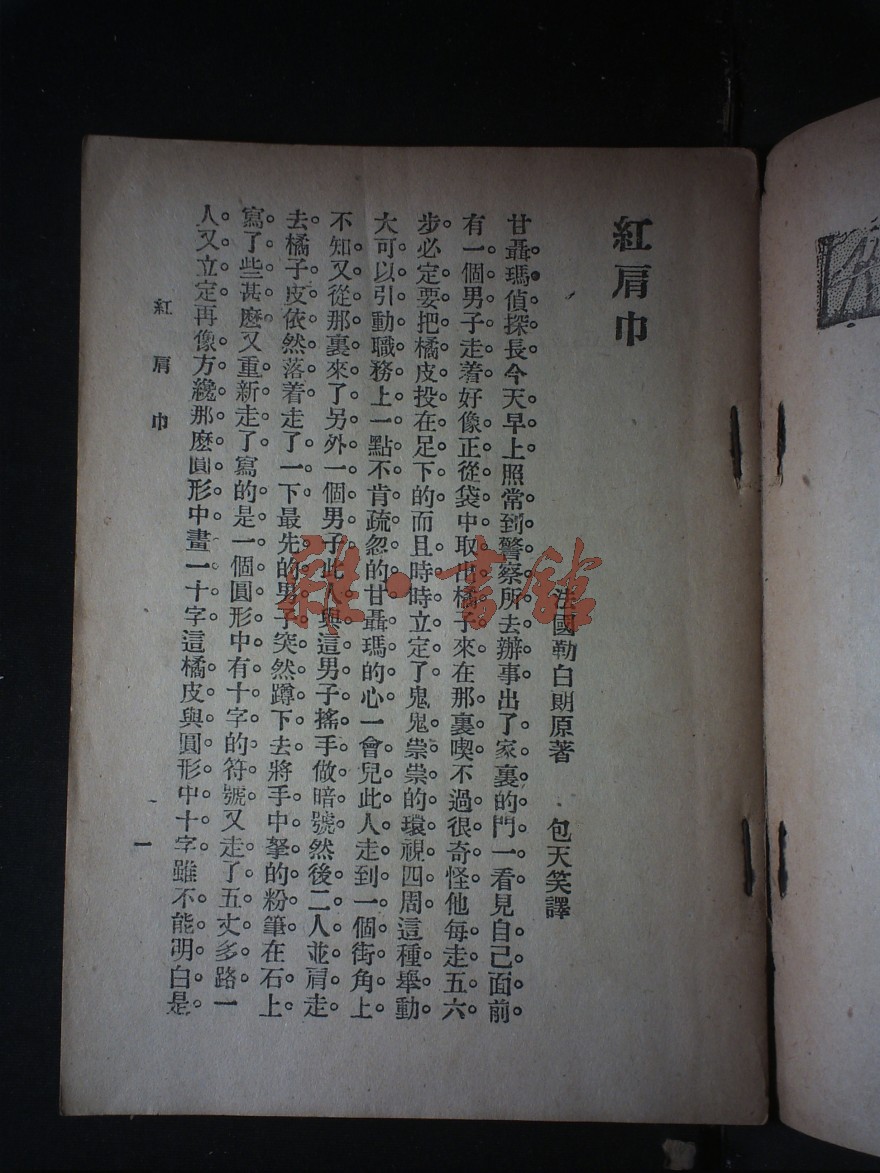 紅肩巾
法國勒白朗原著　包天笑譯
甘聶瑪偵探長今天早上照常到警察所去辦事出了家裏的門一看見自己面前
有一個男子走着好像正從袋中取出橘子來在那裏喫不過很奇怪他每走五六
步必定要把橘皮投在足下的而且時時立定了鬼鬼祟祟的環視四周這種舉動
大可以引動職務上一點不肯疏忽的甘聶瑪的心一會兒此人走到一個街角上
不知又從那裏來了另外一個男子此人與這男子搖手做暗號然後二人並肩走
去橘子皮依然落着走了一下最先的男子突然蹲下去將手中拏的粉筆在石上
寫了些甚麼又重新走了寫的是一個圓形中有十字的符號又走了五丈多路一
人又立定再像方纔那麼圓形中畫一十字這橘皮與圓形中十字雖不能明白是
紅肩巾
一
雜·書館